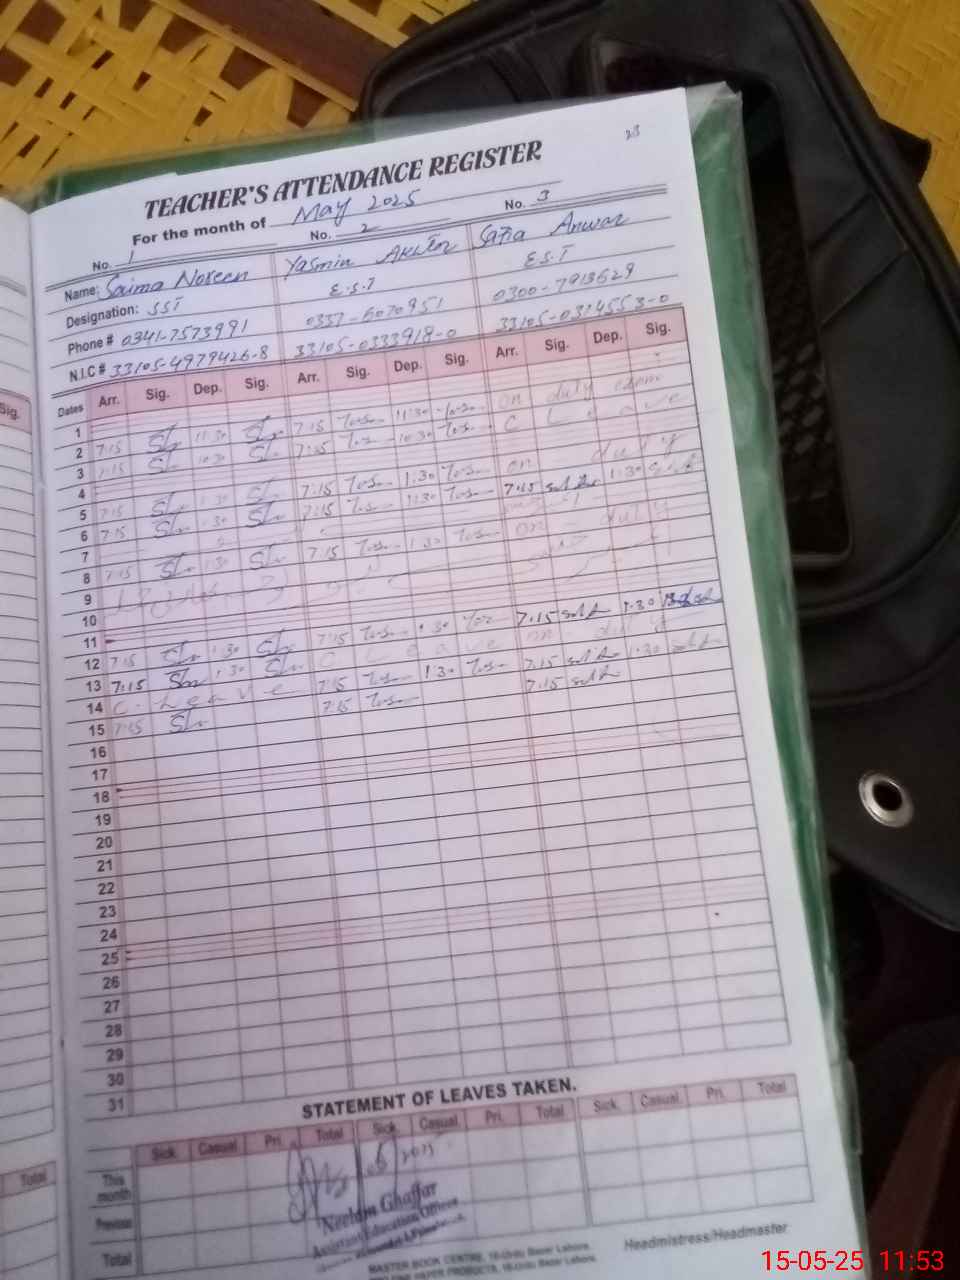 23
TEACHER'S ATTENDANCE REGISTER
For the month of May 2025
No. 1 No. 2 No. 3
Name: Saima Noreen Yasmin Akhtar Safia Anwar
Designation: SST E.S.T E.S.T
Phone # 0341-7573991 0337-6070951 0300-7913629
N.I.C # 33105-4979426-8 33105-0333918-0 33105-0314553-0
Sig.
Dates Arr. Sig. Dep. Sig. Arr. Sig. Dep. Sig. Arr. Sig. Dep. Sig.
1
2 7:15 11:30 7:15 11:30 on duty exam
3 7:15 10:30 7:15 10:30 C Leave
4
5 7:15 1:30 7:15 1:30 on duty
6 7:15 1:30 7:15 1:30 7:15 1:30
7
8 7:15 1:30 7:15 1:30 on duty
9
10
11
12 7:15 1:30 7:15 1:30 7:15 1:30
13 7:15 1:30 C Leave on duty
14 C. Leave 7:15 1:30 7:15 1:30
15 7:15 7:15 7:15
16
17
18
19
20
21
22
23
24
25
26
27
28
29
30
31
STATEMENT OF LEAVES TAKEN.
Sick. Casual Pri. Total Sick. Casual Pri. Total Sick. Casual Pri. Total
This month
Previous
Total
Total
Neelam Ghaffar
Assistant Education Officer
Headmistress/Headmaster
MASTER BOOK CENTRE, 16-Urdu Bazar Lahore.
PAPER PRODUCTS, 16-Urdu Bazar Lahore.
15-05-25 11:53